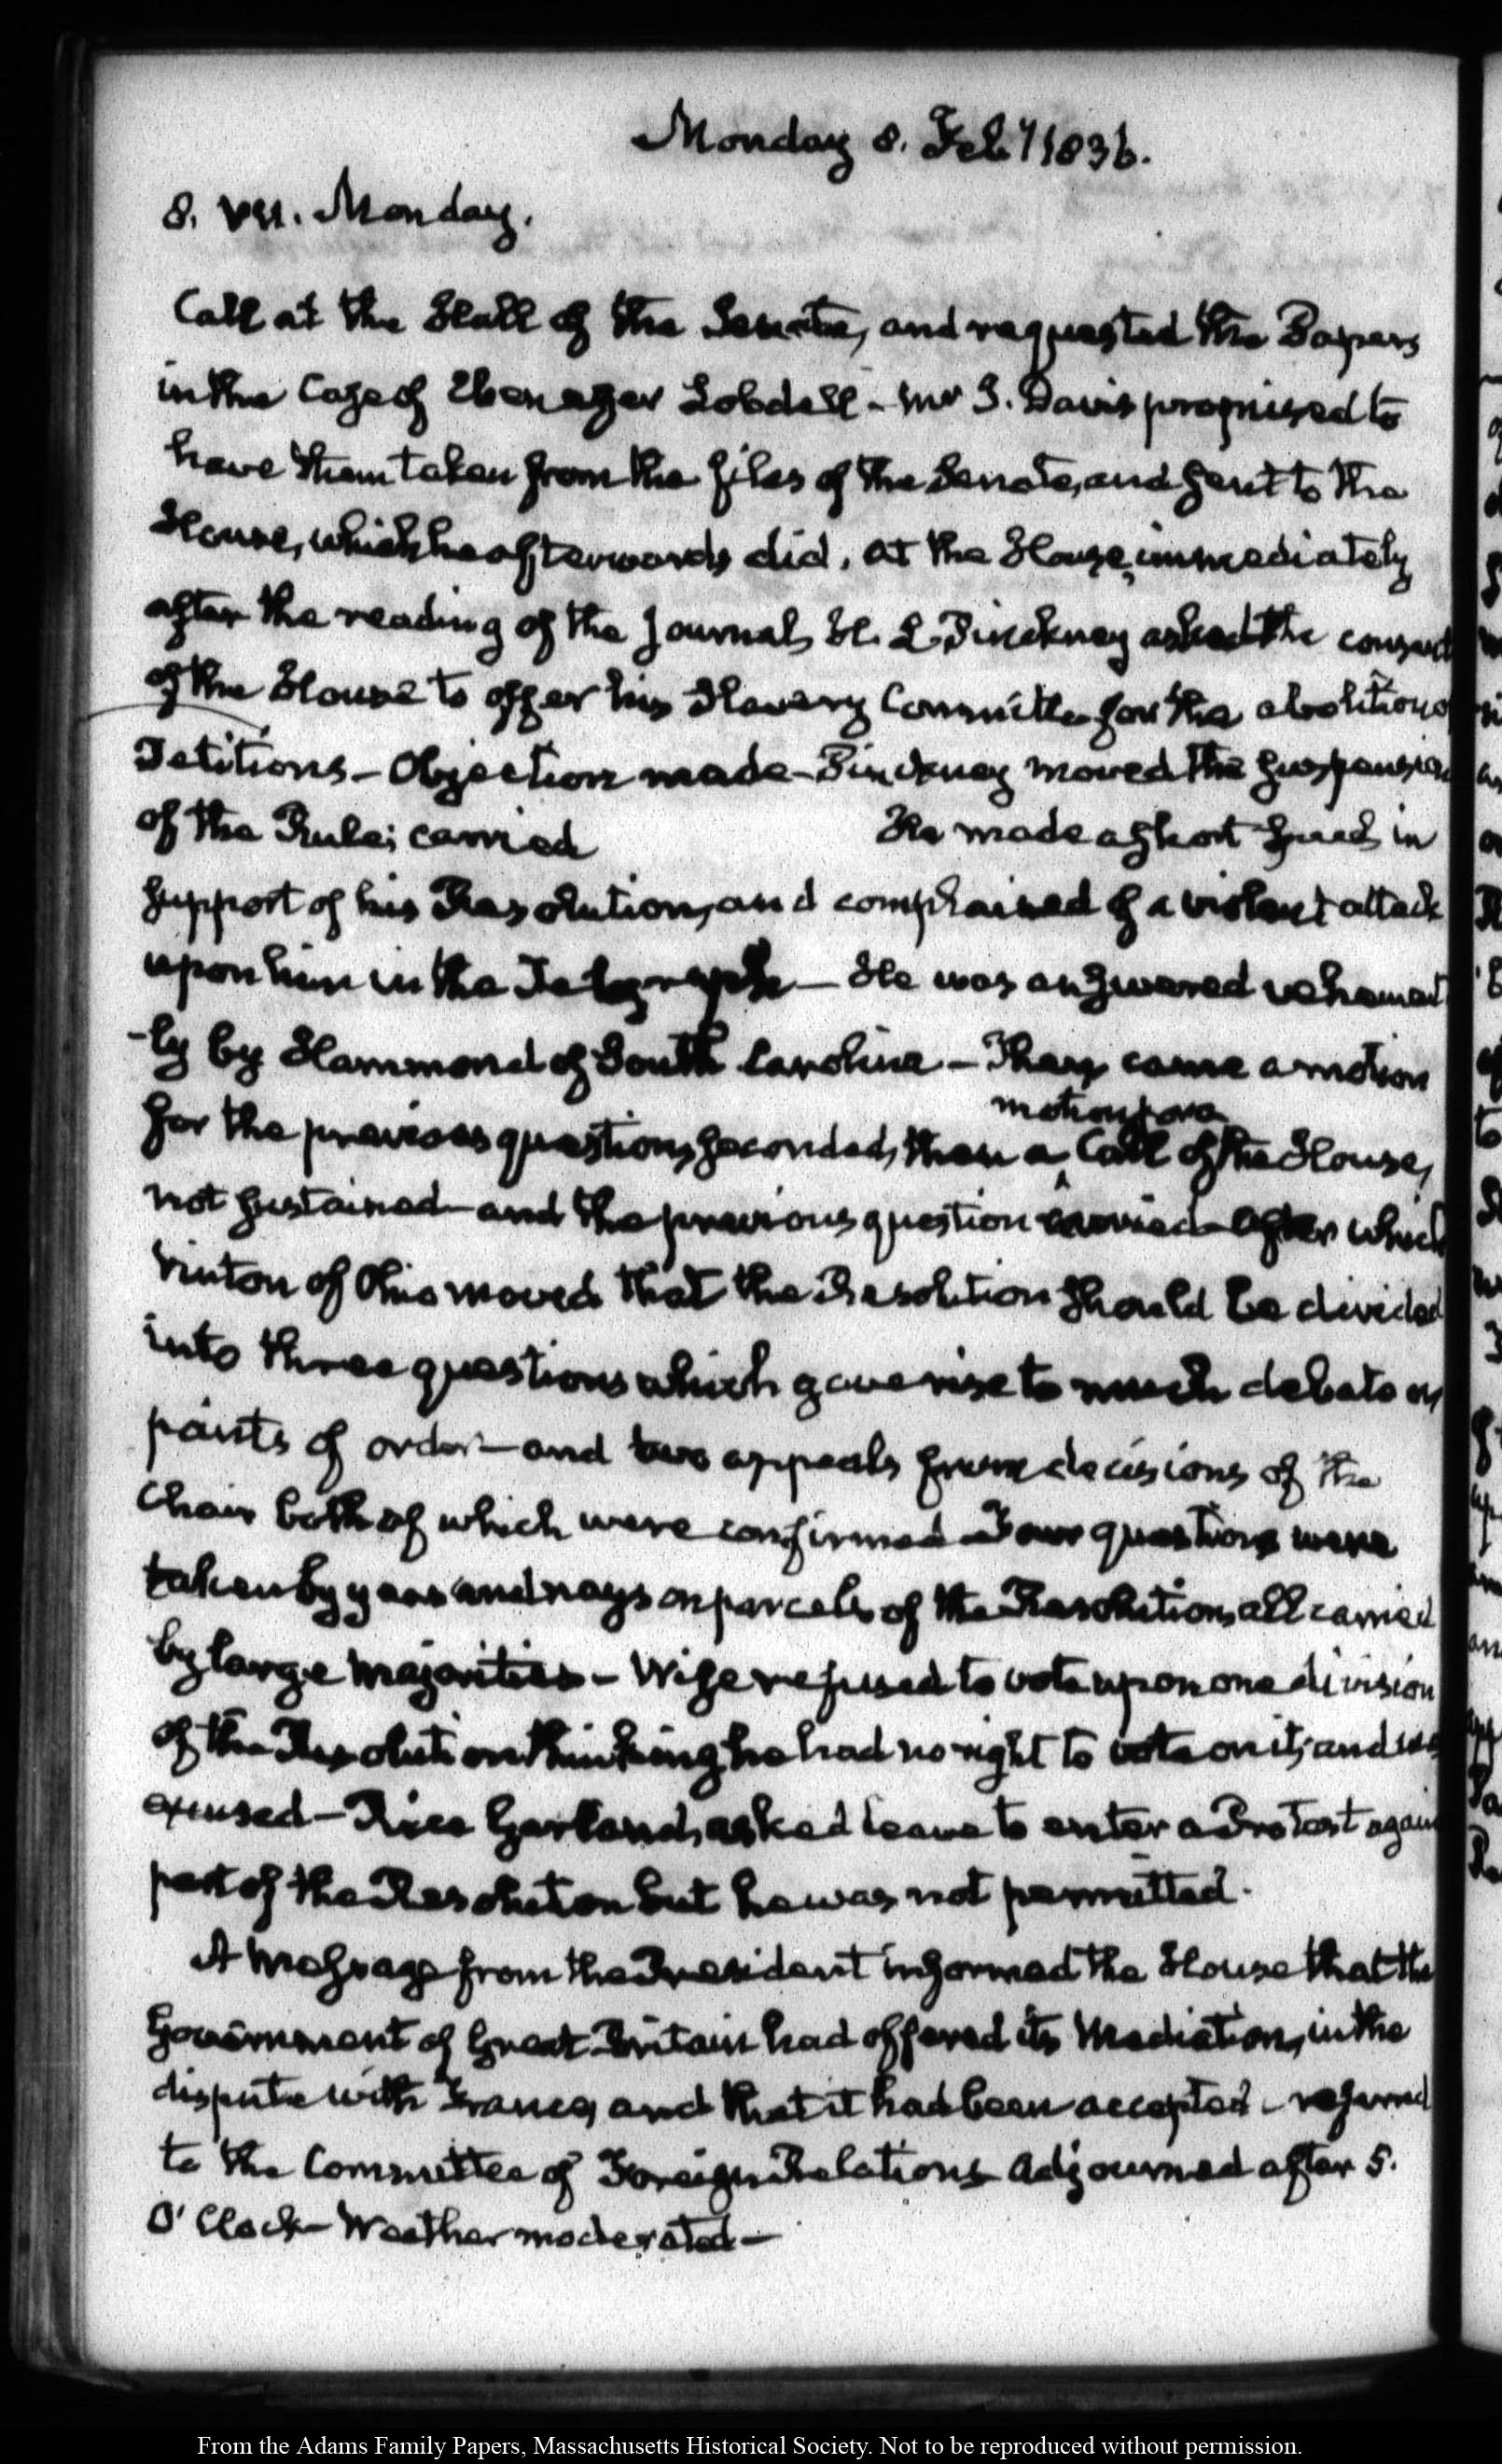 Monday 8. Feby 1836.
8. VII. Monday.
Call at the Hall of the Senate, and requested the Papers
in the Case of Ebenezer Lobdell - Mr J. Davis promised to
have them taken from the files of the Senate, and sent to the
House, which he afterwards did. At the House, immediately
after the reading of the Journal, H. L. Pinckney asked the consent
of the House to offer his Slavery Committee for the abolition
Petitions - Objection made - Pinckney moved the suspension
of the Rule; carried He made a short speech in
support of his Resolution, and complained of a violent attack
upon him in the Telegraph - He was answered vehement
-ly by Hammond of South Carolina - Then came a motion
for the previous question, seconded, then a motion for a Call of the House,
not sustained - and the previous question carried - after which
Vinton of Ohio moved that the Resolution should be divided
into three questions which gave rise to much debate on
points of order - and two appeals from decisions of the
Chair both of which were confirmed - Four questions were
taken by yeas and nays on parcels of the Resolution, all carried
by large majorities - Wise refused to vote upon one division
of the Resolution thinking he had no right to vote on it; and was
excused - Rice Garland, asked leave to enter a Protest again
part of the Resolution but he was not permitted.
A Message from the President informed the House that the
Government of Great-Britain had offered its Mediation, in the
dispute with France, and that it had been accepted - referred
to the Committee of Foreign Relations Adjourned after 5.
O'Clock - Weather moderated -
From the Adams Family Papers, Massachusetts Historical Society. Not to be reproduced without permission.